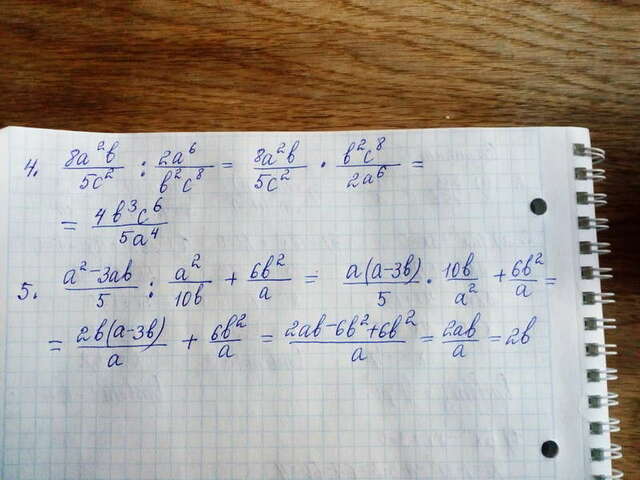 4. \frac{8a^2b}{5c^2} : \frac{2a^6}{b^2c^8} = \frac{8a^2b}{5c^2} \cdot \frac{b^2c^8}{2a^6} =
= \frac{4b^3c^6}{5a^4}
5. \frac{a^2-3ab}{5} : \frac{a^2}{10b} + \frac{6b^2}{a} = \frac{a(a-3b)}{5} \cdot \frac{10b}{a^2} + \frac{6b^2}{a} =
= \frac{2b(a-3b)}{a} + \frac{6b^2}{a} = \frac{2ab-6b^2+6b^2}{a} = \frac{2ab}{a} = 2b